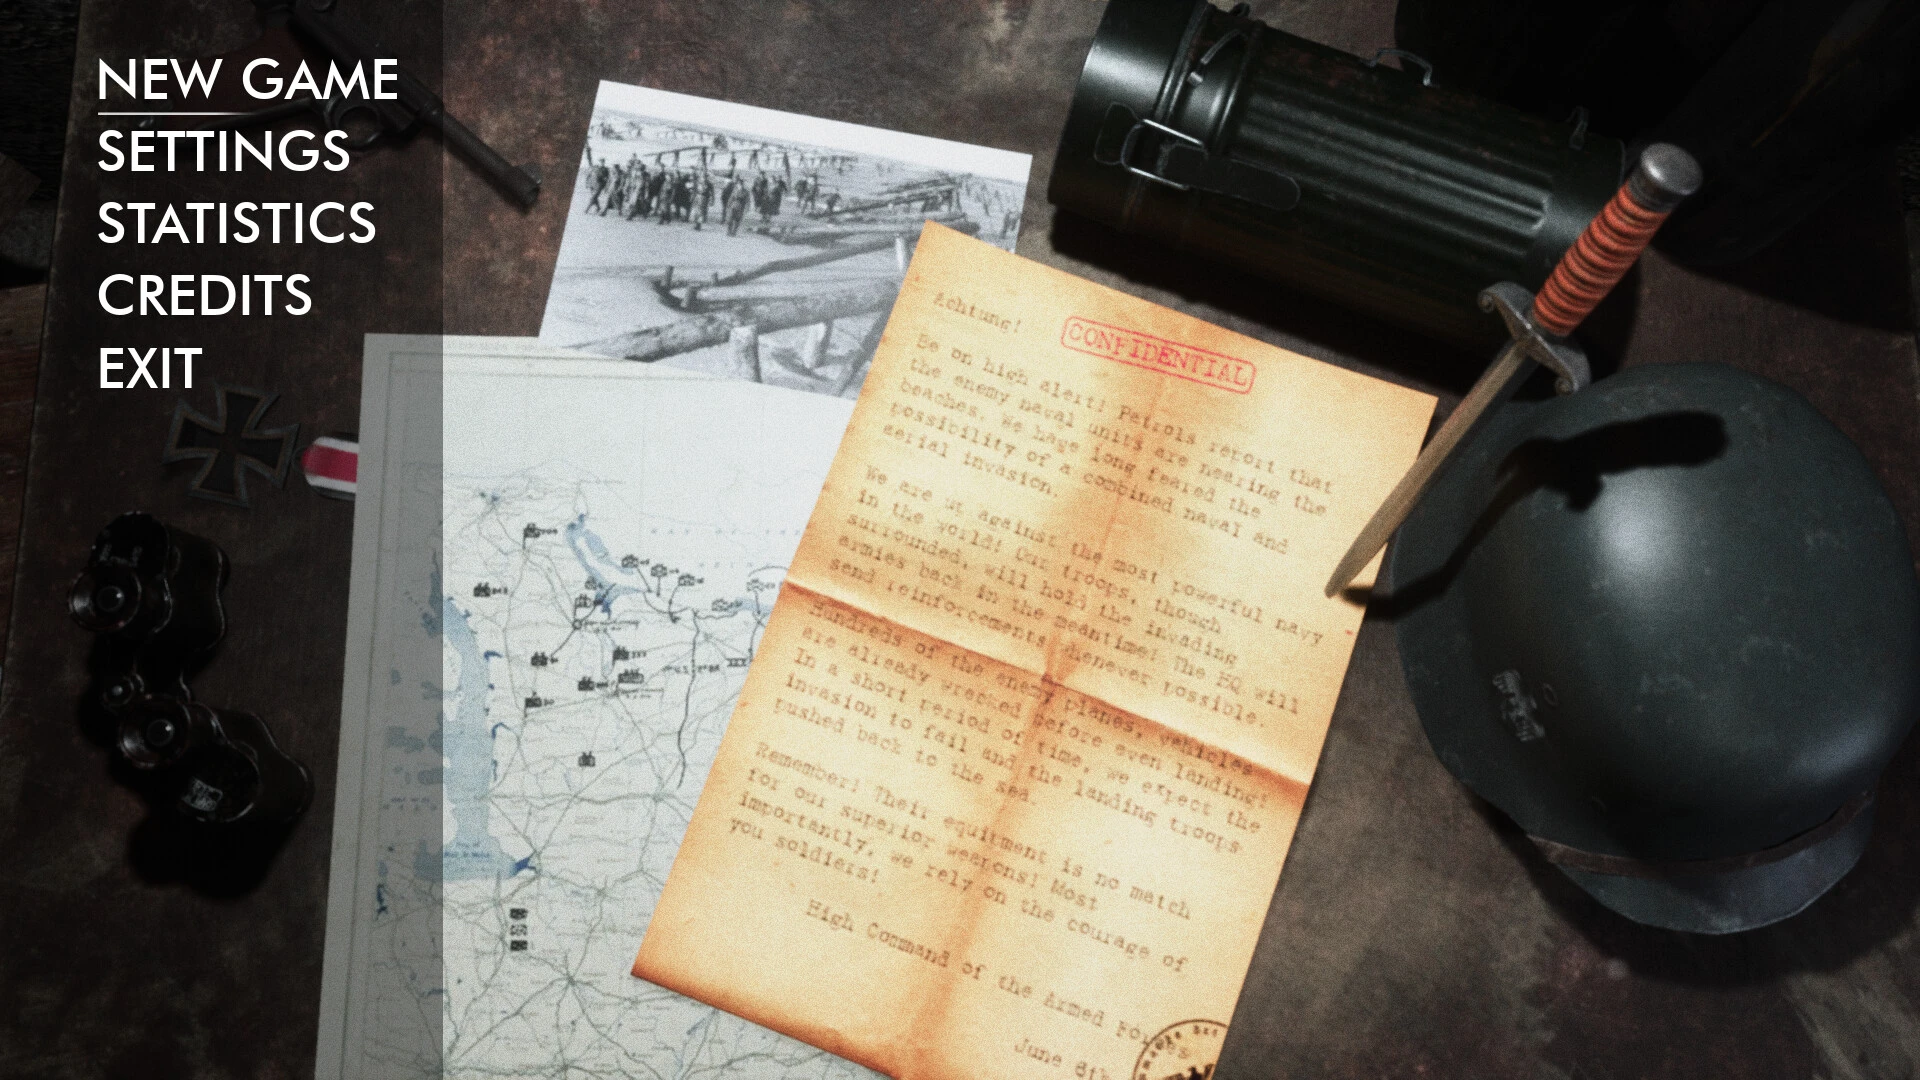 NEW GAME
SETTINGS
STATISTICS
CREDITS
EXIT
Achtung!
CONFIDENTIAL
Be on high alert! Patrols report that
the enemy naval units are nearing the
beaches. We have long feared the
possibility of a combined naval and
aerial invasion.
We are up against the most powerful navy
in the world! Our troops, though
surrounded, will hold the invading
armies back in the meantime! The HQ will
send reinforcements whenever possible.
Hundreds of the enemy planes, vehicles
are already wrecked before even landing!
In a short period of time, we expect the
invasion to fail and the landing troops
pushed back to the sea.
Remember! Their equitment is no match
for our superior weapons! Most
importantly, we rely on the courage of
you soldiers!
High Command of the Armed Forces
June 6th